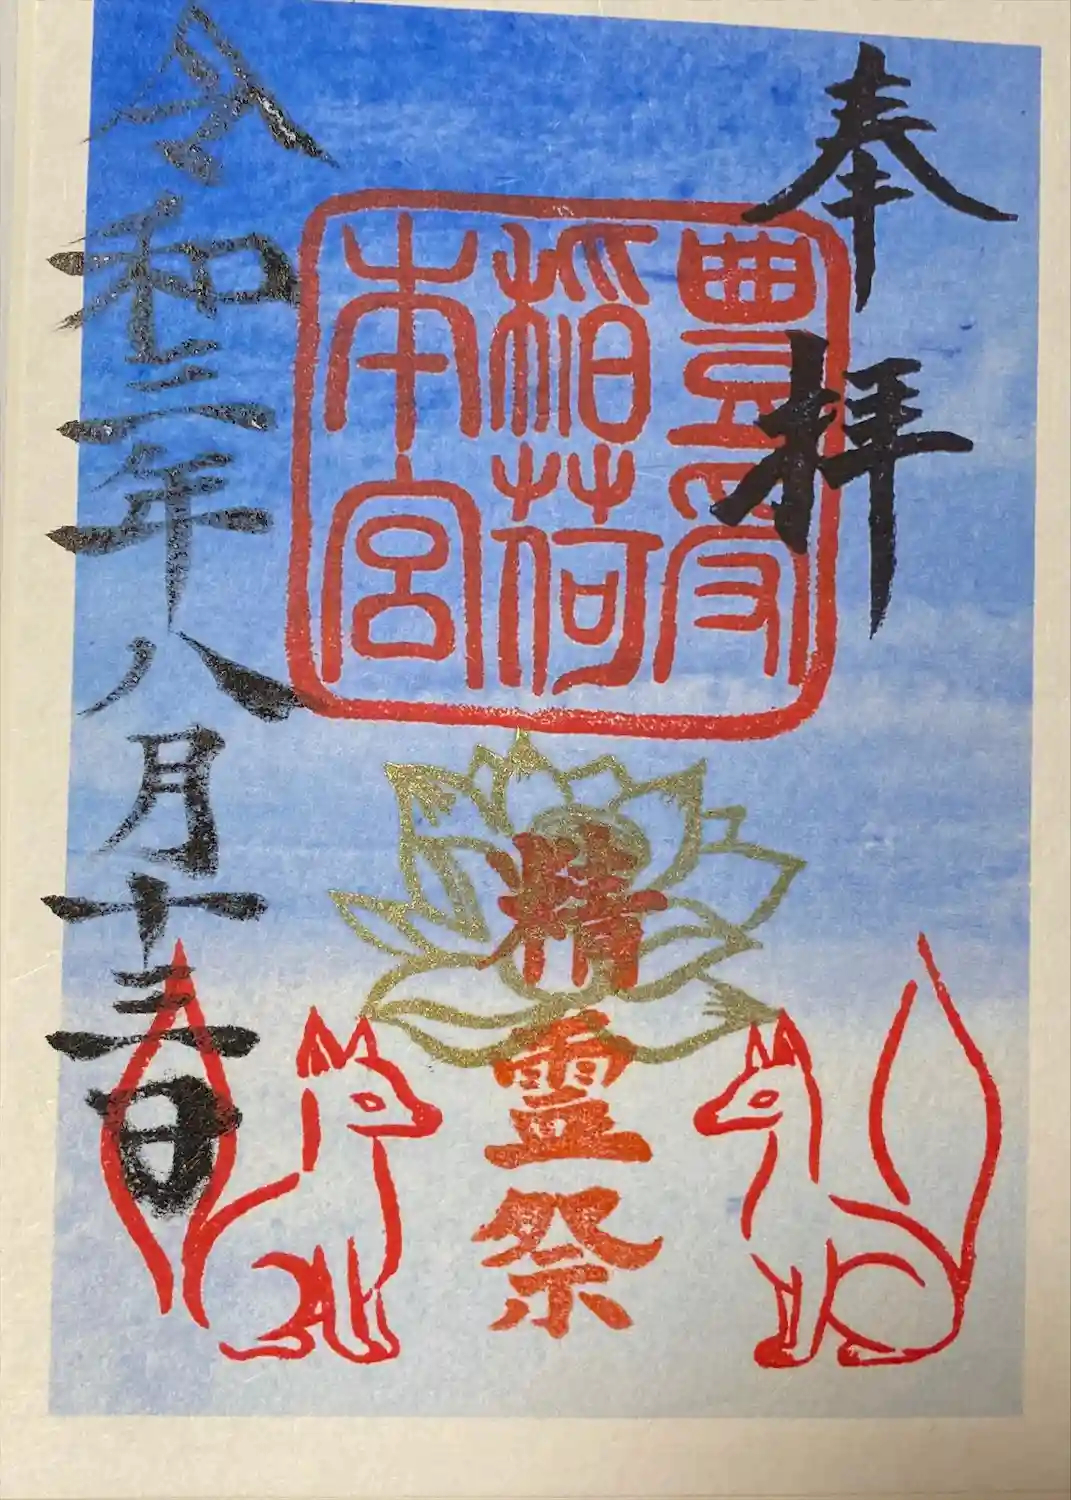 奉拝
豊受
稲荷
本宮
精霊祭
令和三年八月十三日